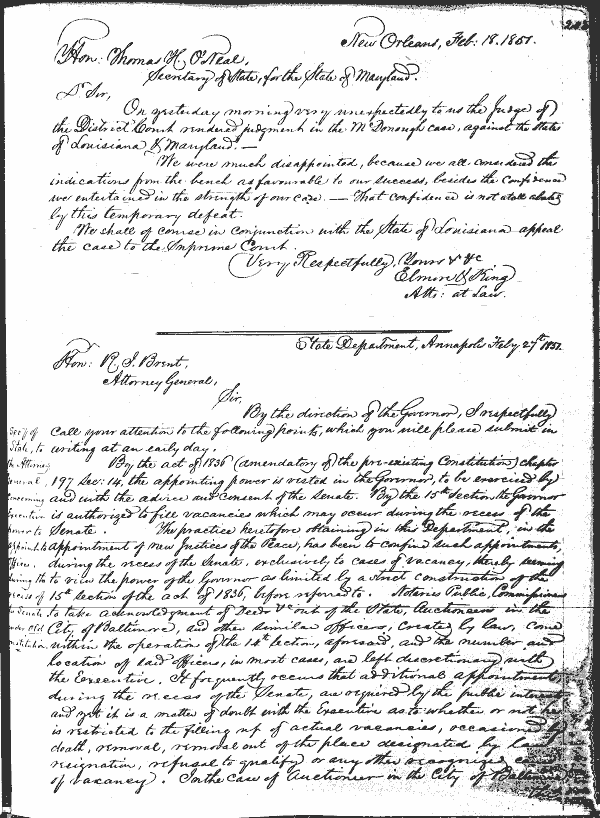 New Orleans, Feb. 18. 1851.
Hon: Thomas H. O'Neal,
Secretary of State, for the State of Maryland.
Dr Sir,
On yesterday morning very unexpectedly to us the Judge of
the District Court rendered judgment in the McDonough case, against the States
of Louisiana & Maryland. —
We were much disappointed, because we all considered the
indications from the bench as favourable to our success, besides the confidence
we entertained in the strength of our case. — That confidence is not at all abated
by this temporary defeat.
We shall of course in conjunction with the State of Louisiana appeal
the case to the Supreme Court.
Very Respectfully, Yours &c &c
Elmore & King
Atts: at Law.
State Department, Annapolis Feby 27th 1851.
Hon: R. J. Brent,
Attorney General,
Sir,
By the direction of the Governor, I respectfully
call your attention to the following points, which you will please submit in
writing at an early day.
By the act of 1836 (amendatory of the pre-existing Constitution) chapter
197 Sec: 14, the appointing power is vested in the Governor, to be exercised by
and with the advice and consent of the Senate. By the 15th Section, the Governor
is authorized to fill vacancies which may occur during the recess of the
Senate. The practice heretofore obtaining in this Department, in the
appointment of new Justices of the Peace, has been to confine such appointments,
during the recess of the Senate, exclusively to cases of vacancy, thereby seeming
to view the power of the Governor as limited by a strict construction of the
15th section of the act of 1836, before referred to. Notaries Public, Commissioners
to take acknowledgment of Deeds &c out of the State, Auctioneers in the
City of Baltimore, and other similar officers, created by law, come
within the operation of the 14th Section, aforesaid, and the number and
location of said officers, in most cases, are left discretionary with
the Executive. It frequently occurs that additional appointments
during the recess of the Senate, are required by the public interest
and yet it is a matter of doubt with the Executive as to whether or not he
is restricted to the filling up of actual vacancies, occasioned by
death, removal, removal out of the place designated by law
resignation, refusal to qualify or any other recognized
of vacancy. In the case of Auctioneer in the City of Baltimore
Sec'y of
State, to
the Attorney
General,
concerning
Executive
power to
appoint to
Office
during the
recess of
the Senate
under old
Constitution